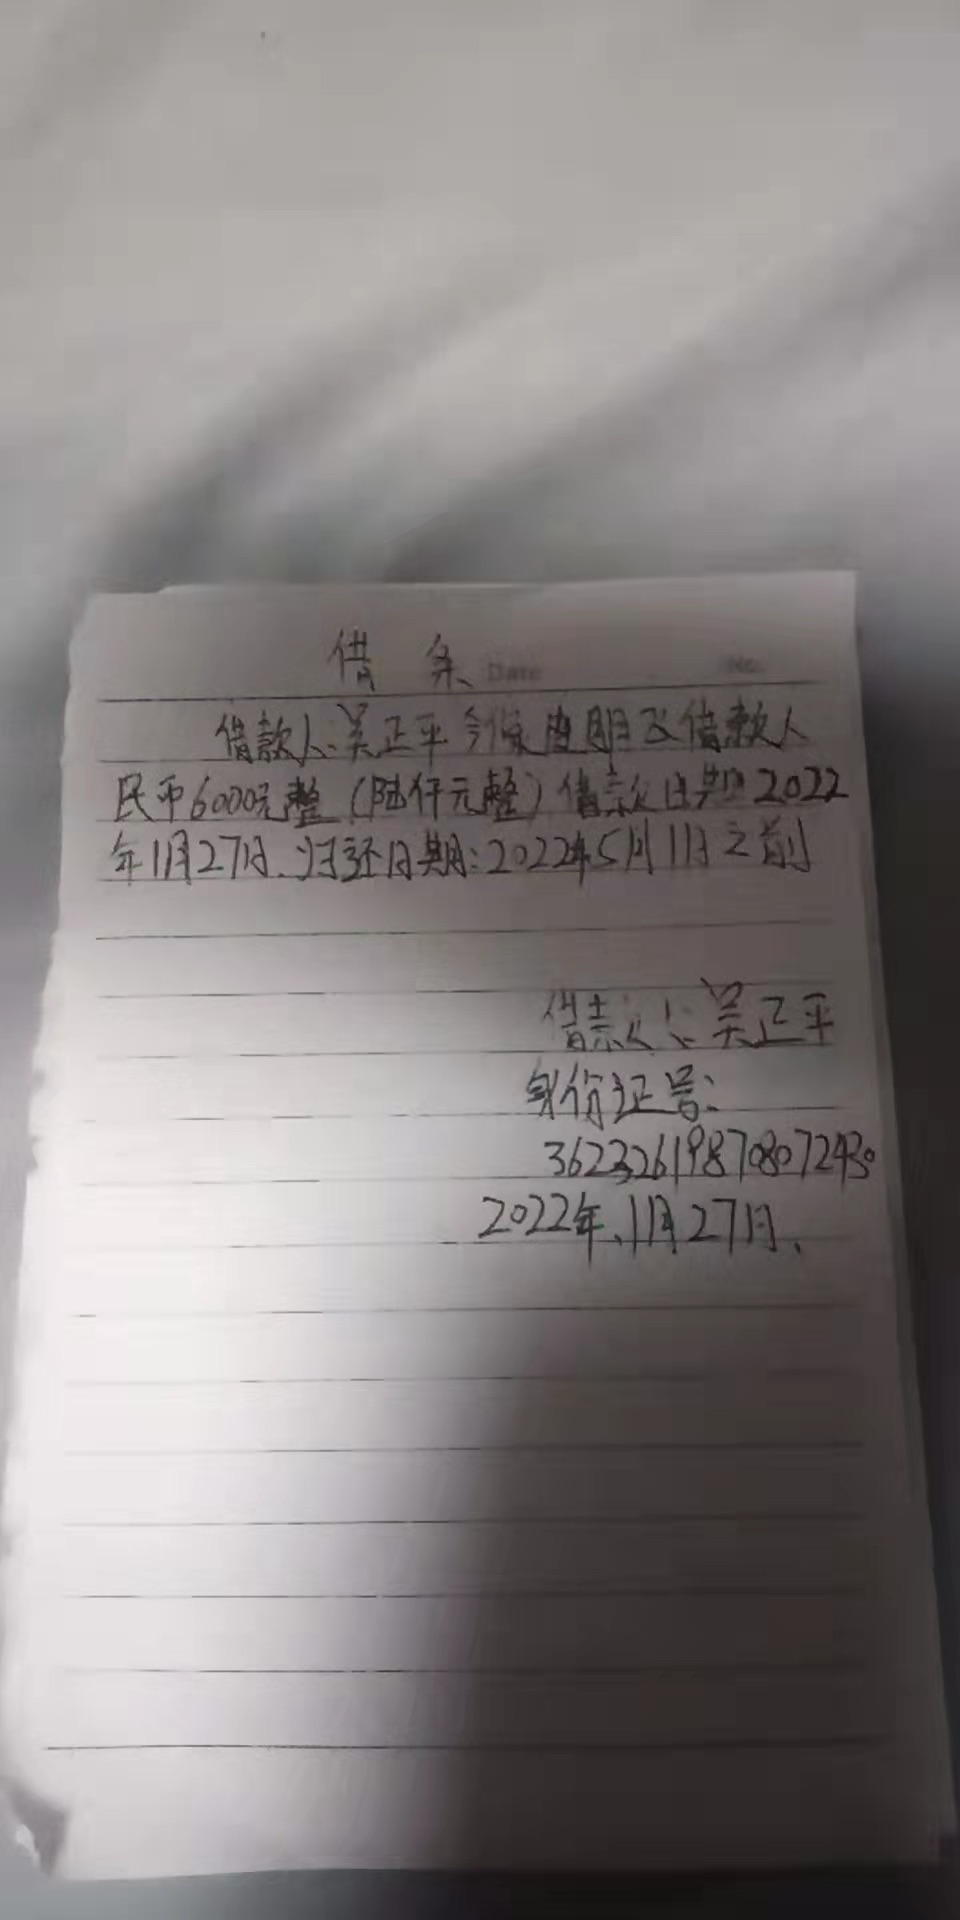 借 条 Date No.
借款人:吴正平今 借款人
民币6000元整(陆仟元整)借款日期2022
年11月27日.归还日期:2022年5月11日之前
借款人:吴正平
身份证号:
362326198708072430
2022年.11月27日.